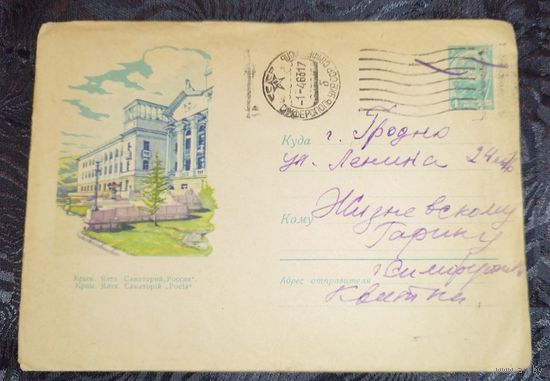 СИМФЕРОПОЛЬ
-1-4 63 17
Куда г. Гродно
ул. Ленина 24
Кому Жизневскому
Гарику
Адрес отправителя г. Симферополь
Квитки
Крым. Ялта. Санаторий „Россия“.
Крим. Ялта. Санаторій „Росія“.